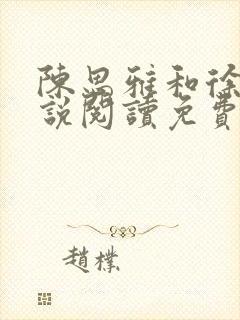 陳思雅和徐
說閱讀免費
趙樸